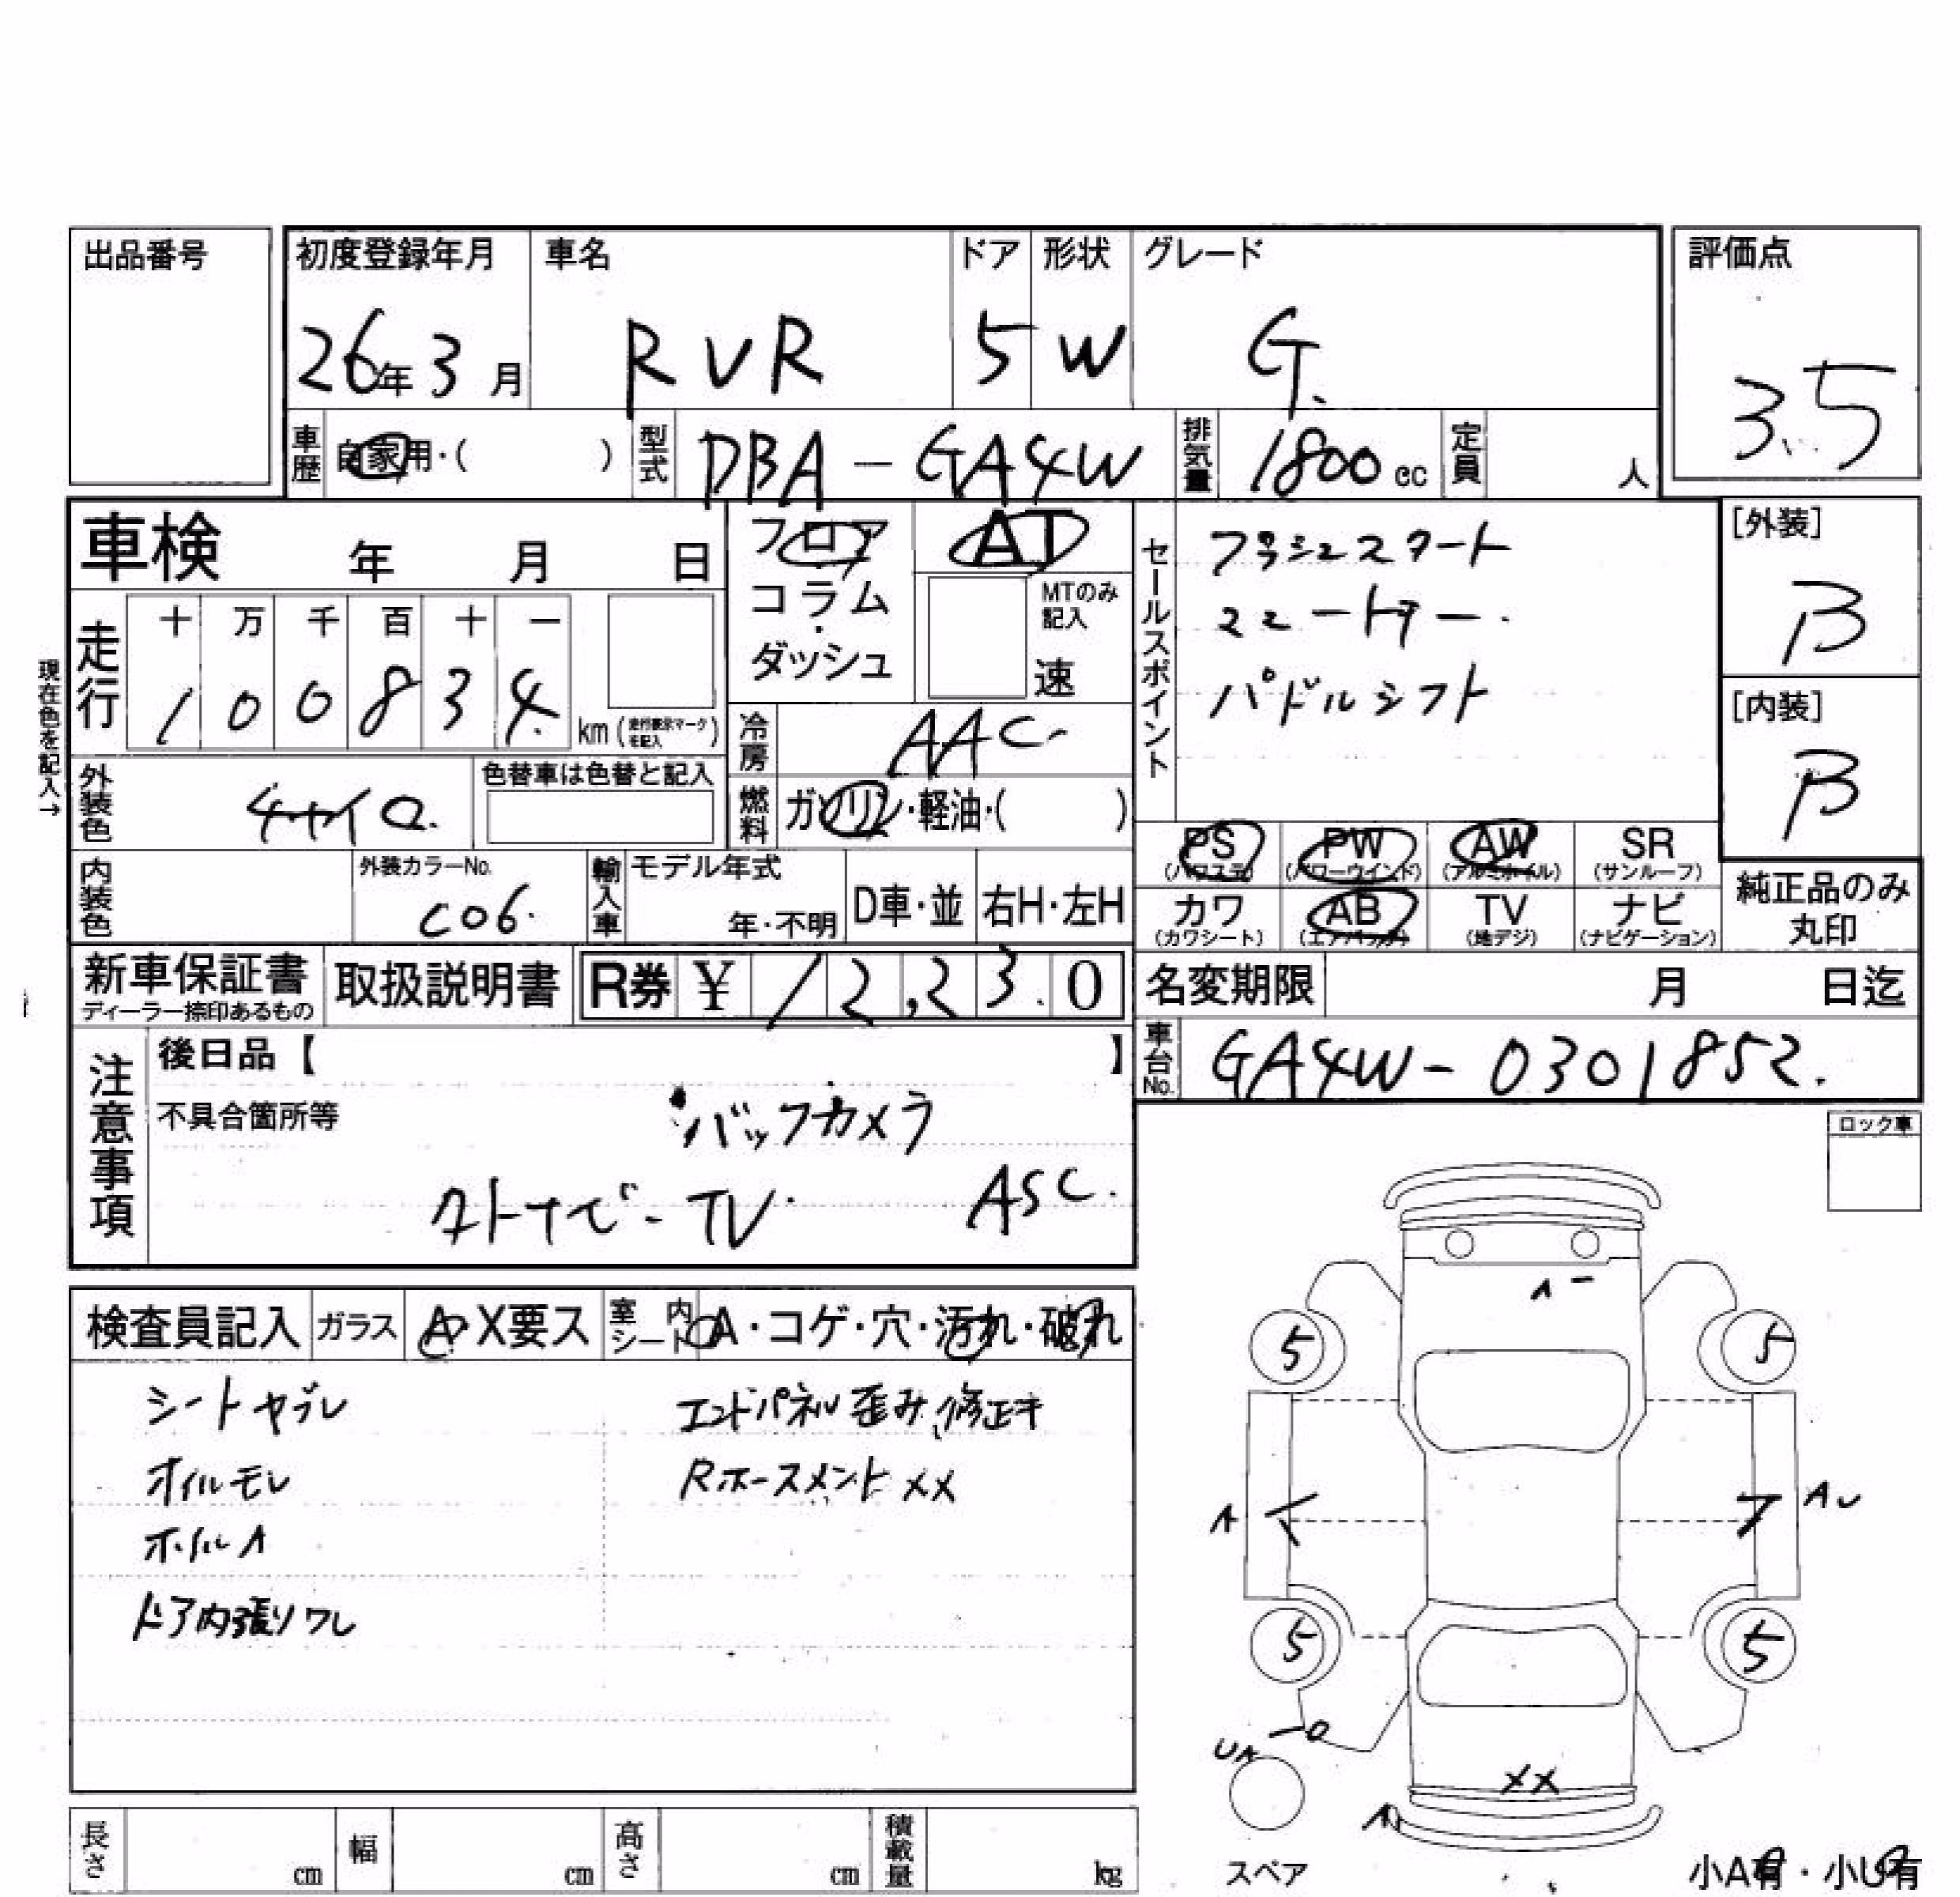 出品番号
初度登録年月 車名 ドア 形状 グレード 評価点
26年3月 RVR 5 W G. 3.5
車歴 自家用・( ) 型式 DBA-GA4W 排気量 1800cc 定員 人
車検 年 月 日
フロア AT
コラム・ MTのみ記入
ダッシュ 速
セールスポイント
プッシュスタート
スマートキー.
パドルシフト
[外装]
B
[内装]
B
現在色を記入→
走行 十 万 千 百 十 一
1 0 0 8 3 4 km(走行表示マークを記入)
冷房 AAC
外装色 チャイロ. 色替車は色替と記入
燃料 ガソリン・軽油・( )
PS PW AW SR
(パワステ) (パワーウインド) (アルミホイル) (サンルーフ)
内装色 外装カラーNo. C06. 輸入車 モデル年式 年・不明 D車・並 右H・左H
カワ AB TV ナビ
(カワシート) (エアバッグ) (地デジ) (ナビゲーション)
純正品のみ
丸印
新車保証書 取扱説明書 R券 ¥ 12,230
ディーラー捺印あるもの
名変期限 月 日迄
車台No. GA4W-0301852.
注意事項
後日品【 】
不具合箇所等 バックカメラ
TV. ASC.
ロック車
検査員記入 ガラス A・X要ス 室内シート A・コゲ・穴・汚れ・破れ
シートヤブレ エンドパネル歪み、修正キ
オイルモレ Rホースメント XX
ホイルA
ドア内張りワレ
A-
5 5
A AU
5 5
UA
XX
A
スペア
小A有・小U有
長さ cm 幅 cm 高さ cm 積載量 kg